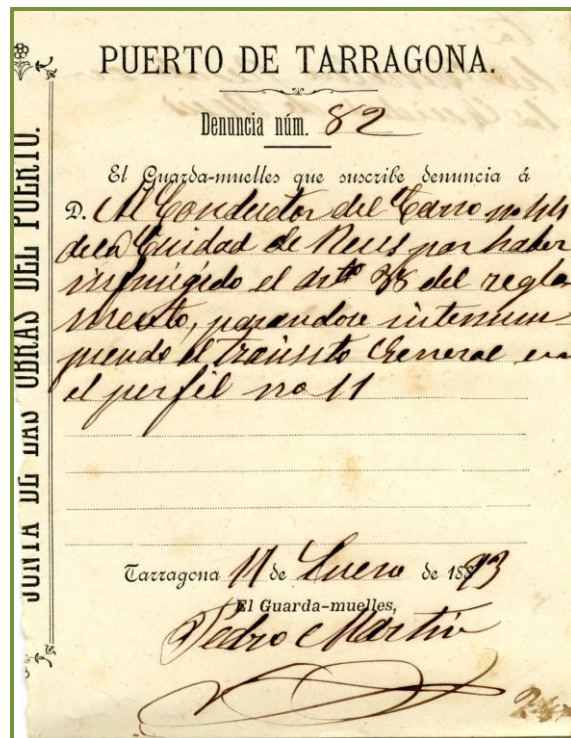 JUNTA DE LAS OBRAS DEL PUERTO.
PUERTO DE TARRAGONA.
Denuncia núm. 82
El Guarda-muelles que suscribe denuncia á
D. Al Conductor del Carro no
de la Cuidad de Reus por haber
infringido el artº 38 del regla
mento, parandose interrum-
piendo el transito General en
el perfil no 11
Tarragona 11 de Enero de 1893
El Guarda-muelles,
Pedro Martin